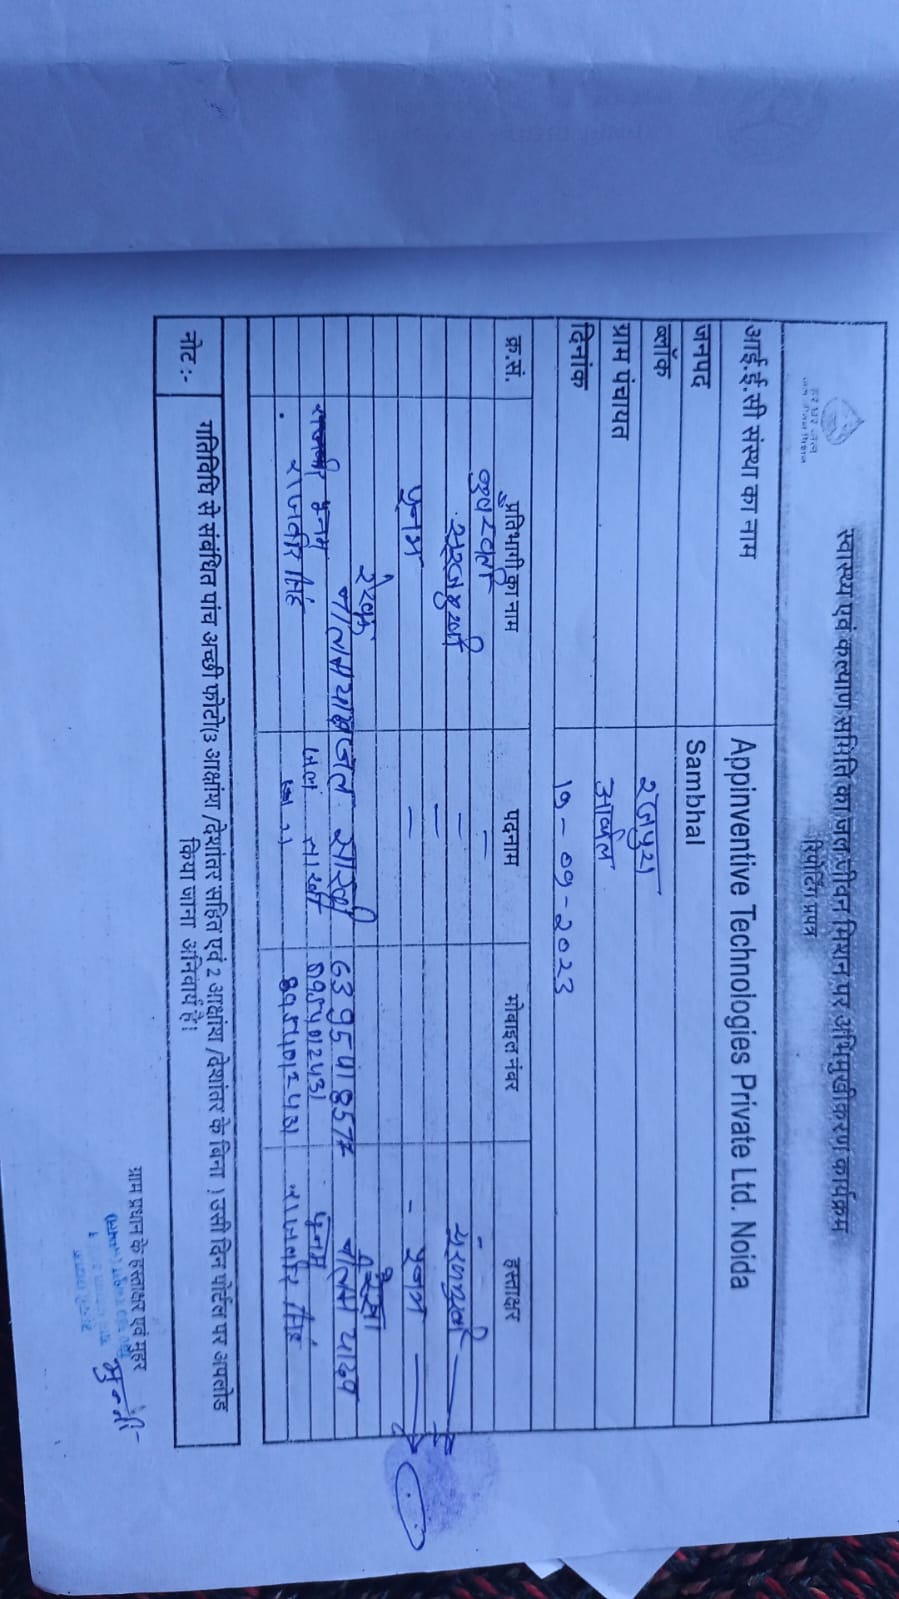 हर घर जल
जल जीवन मिशन
स्वास्थ्य एवं कल्याण समिति का जल जीवन मिशन पर अभिमुखीकरण कार्यक्रम
रिपोर्टिंग प्रपत्र
आई.ई.सी संस्था का नाम Appinventive Technologies Private Ltd. Noida
जनपद Sambhal
ब्लॉक रजपुरा
ग्राम पंचायत
दिनांक 19-09-2023
क्र.सं. प्रतिभागी का नाम पदनाम मोबाइल नंबर हस्ताक्षर
सूरजमुखी
पूनम - पूनम
रेखा रेखा
यादव जल सखी 6395418577 यादव
पूनम जल सखी पूनम
राजवीर सिंह राजवीर सिंह
नोट :- गतिविधि से संबंधित पांच अच्छी फोटो(3 आक्षांश /देशांतर सहित एवं 2 आक्षांश /देशांतर के बिना ) उसी दिन पोर्टल पर अपलोड
किया जाना अनिवार्य है।
ग्राम प्रधान के हस्ताक्षर एवं मुहर
मुन्नी